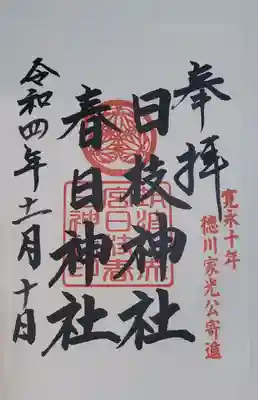 寛永十年
徳川家光公寄進
奉拝
日枝神社
春日神社
令和四年十一月十日